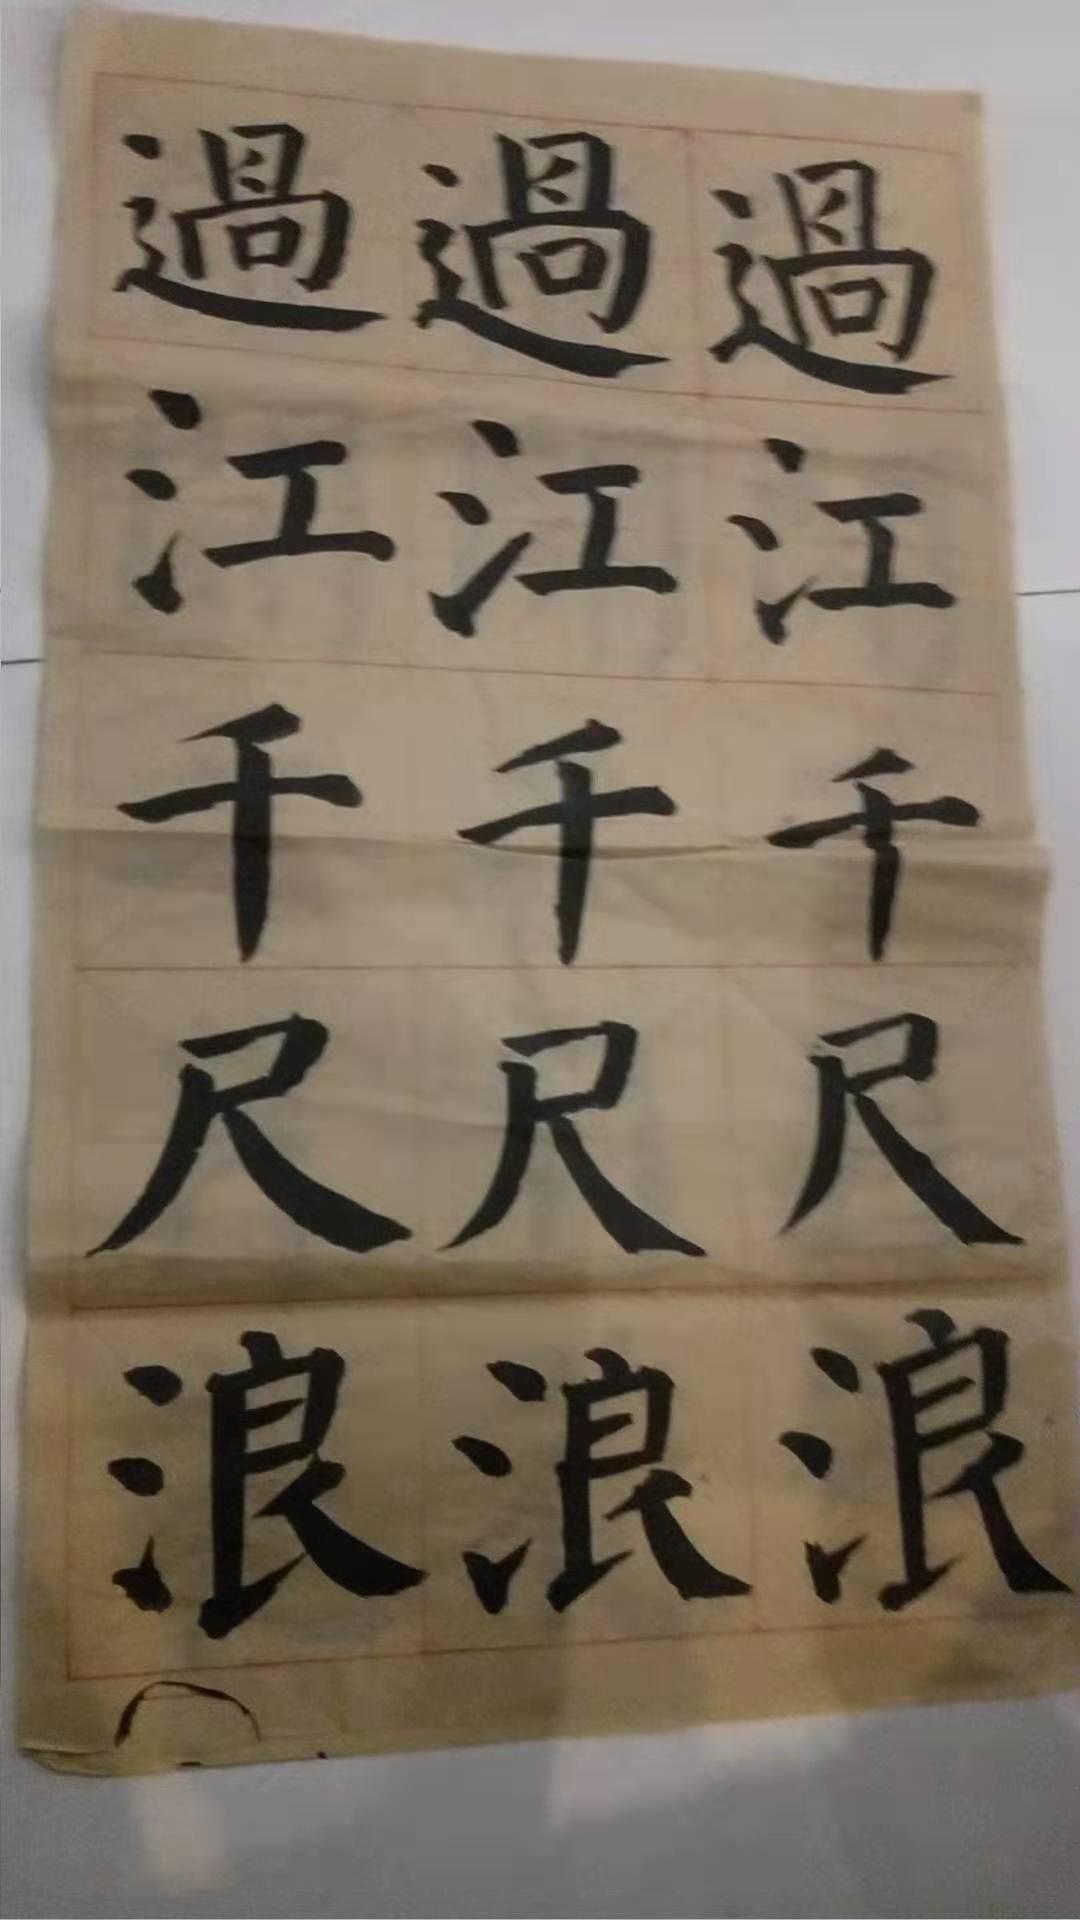 過江千尺浪
過江千尺浪
過江千尺浪